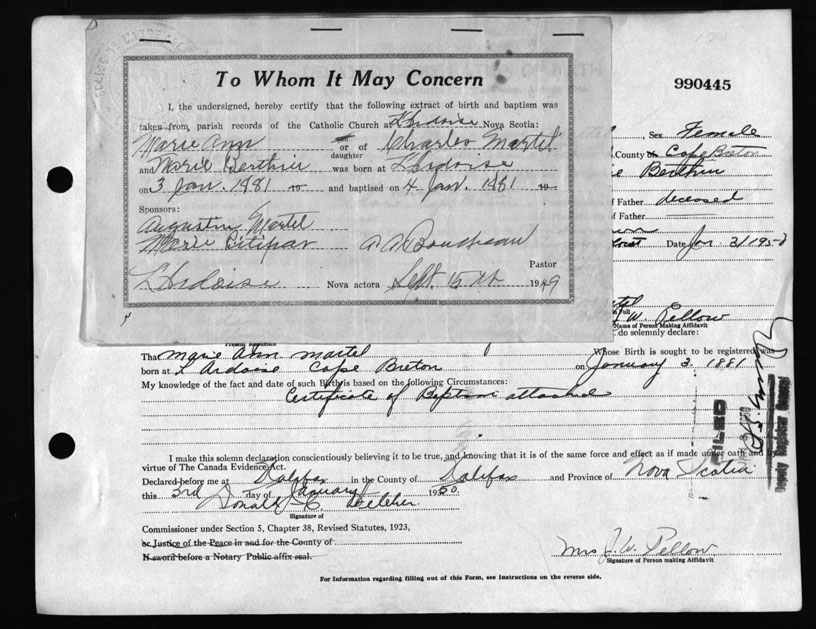 To Whom It May Concern
I, the undersigned, hereby certify that the following extract of birth and baptism was
taken from parish records of the Catholic Church at L'Ardoise Nova Scotia:
Marie Ann son or of Charles Martel
daughter
and Marie Berthier was born at L'Ardoise
on 3 Jan. 1881 19 and baptised on 4 Jan. 1881 19
Sponsors:
Augustin Martel
Marie A A Boudreau
Pastor
L'Ardoise Nova Scotia Sept. 15th 1949
990445
Sex Female
County of Cape Breton
Berthier
of Father deceased
of Father
Date Jan. 3/1950
W. Pellow
Name of Person Making Affidavit
do solemnly declare:
That Marie Ann Martel Whose Birth is sought to be registered was
born at L'Ardoise Cape Breton on January 3. 1881
My knowledge of the fact and date of such Birth is based on the following Circumstances:
Certificate of Baptism attached
I make this solemn declaration conscientiously believing it to be true, and knowing that it is of the same force and effect as if made under oath and by
virtue of The Canada Evidence Act.
Declared before me at Halifax in the County of Halifax and Province of Nova Scotia
this 3rd day of January 1950.
Donald C.
Signature of
Commissioner under Section 5, Chapter 38, Revised Statutes, 1923,
or Justice of the Peace in and for the County of
If sworn before a Notary Public affix seal.
Mrs J. W. Pellow
Signature of Person making Affidavit
For Information regarding filling out of this Form, see Instructions on the reverse side.
FILED
Deputy Registrar General